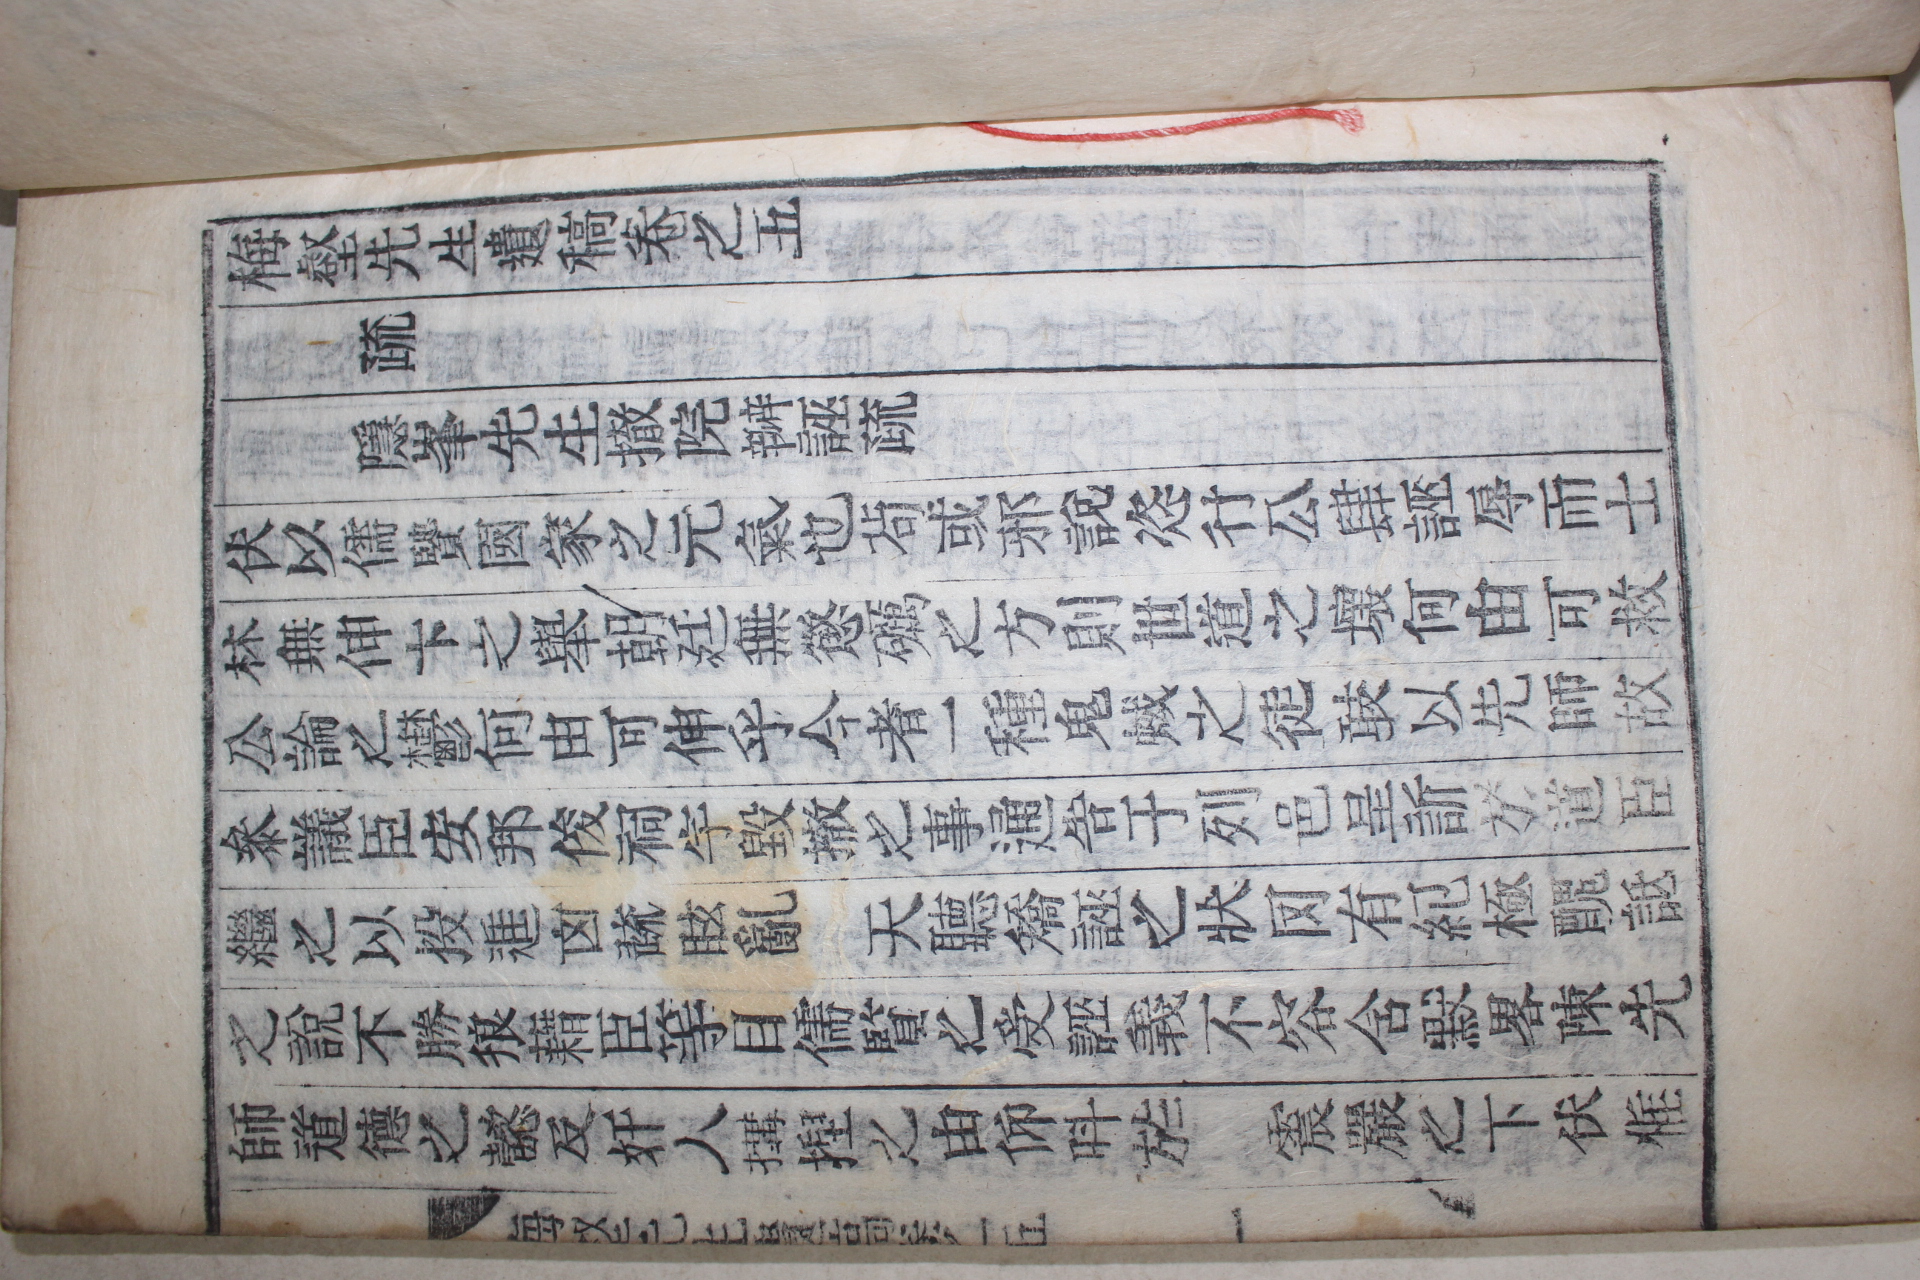 梅壑先生遺稿卷之五
疏
隱峯先生撤院辨誣疏
伏以儒賢國家之元氣也苟或邪說恣行公肆誣辱而士
林無伸卞之擧朝廷無懲礪之方則世道之壞何由可救
公論之鬱何由可伸乎今者一種鬼蜮之徒敢以先師故
叅議臣安邦俊祠宇毀撤之事通告于列邑呈訴於道臣
繼之以投進凶疏眩亂 天聽矯誣之狀罔有紀極醜詆
之說不勝狼藉臣等目儒賢之受誣義不容含默畧陳先
師道德之懿及奸人搆捏之由仰呌於 震嚴之下伏惟
先生遺稿卷之五
一